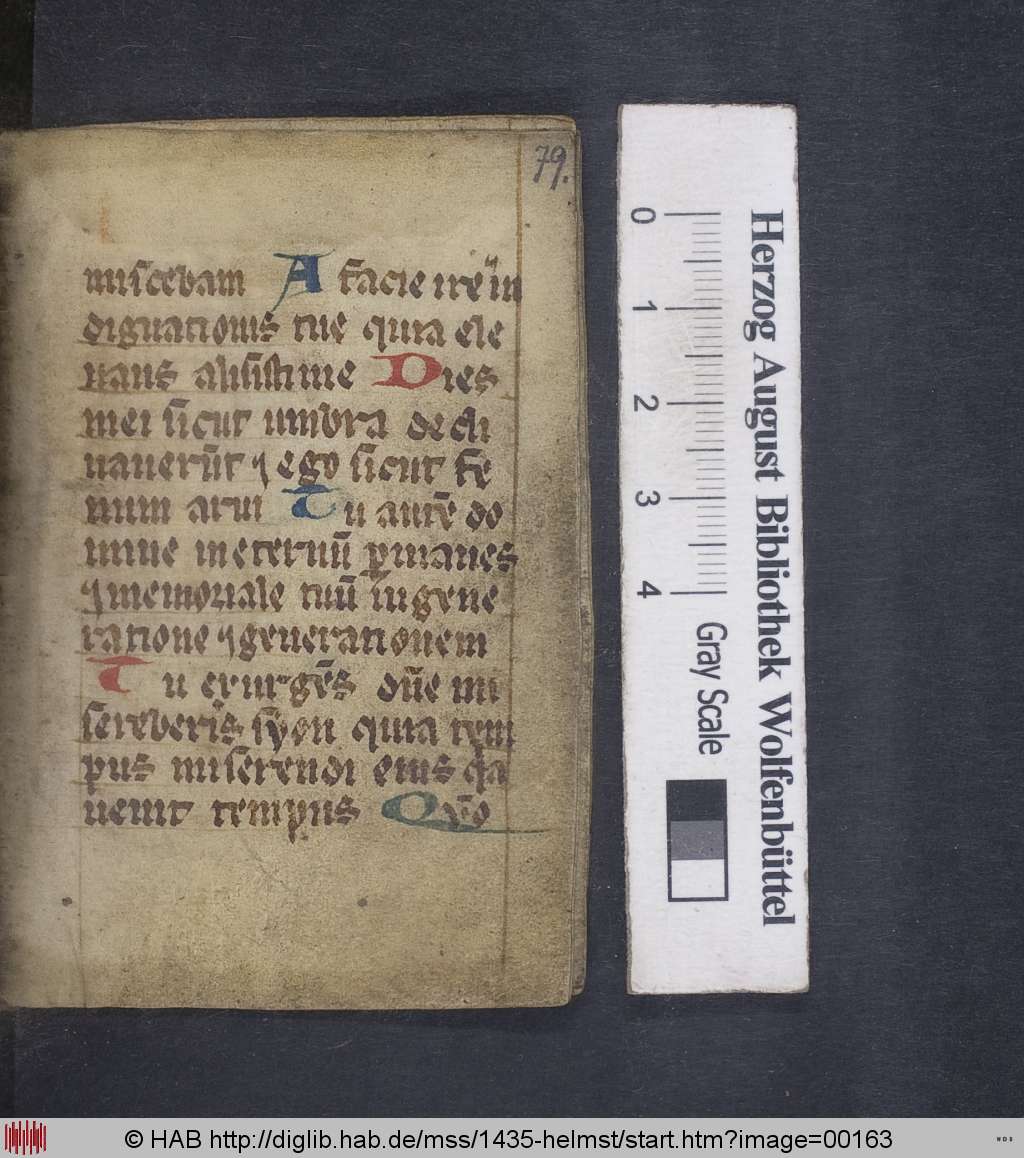 79.
miscebam A facie ire in
dignationis tue quia ele
uans alisisti me Dies
mei sicut umbra decli
nauerūt ⁊ ego sicut fe
num arui Tu autē do
mine in eternū ꝑmanes
⁊ memoriale tuū in gene
ratione ⁊ generationem
Tu exurgēs dn̄e mi
sereberis syon quia tem
pus miserendi eius qͣa
uenit tempus Qm̄
0 1 2 3 4
Gray Scale
Herzog August Bibliothek Wolfenbüttel
© HAB http://diglib.hab.de/mss/1435-helmst/start.htm?image=00163